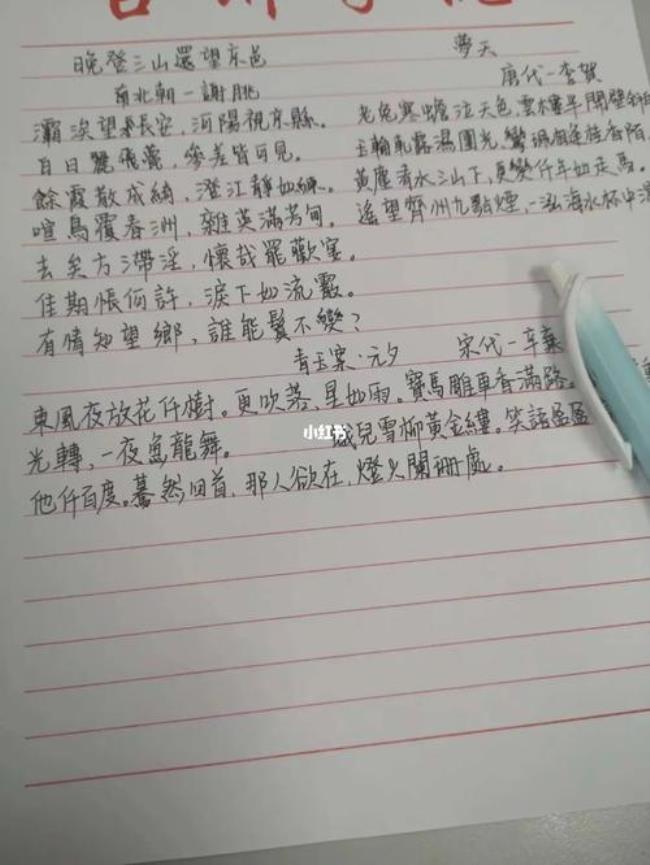 晚登三山還望京邑
南北朝一謝朓
灞涘望長安，河陽視京縣。
白日麗飛甍，參差皆可見。
餘霞散成綺，澄江靜如練。
喧鳥覆春洲，雜英滿芳甸。
去矣方滯淫，懷哉罷歡宴。
佳期悵何許，淚下如流霰。
有情知望鄉，誰能鬒不變？
夢天
唐代一李賀
老兔寒蟾泣天色，雲樓半開壁斜白
玉輪軋露濕團光，鸞珮相逢桂香陌
黃塵清水三山下，更變仟年如走馬。
遙望齊州九點煙，一泓海水杯中瀉
青玉案·元夕
宋代一辛棄
東風夜放花仟樹。更吹落、星如雨。寶馬雕車香滿路。
光轉，一夜魚龍舞。
蛾兒雪柳黃金縷。笑語盈盈
他仟百度。驀然回首，那人欲在，燈火闌珊處。
小红书